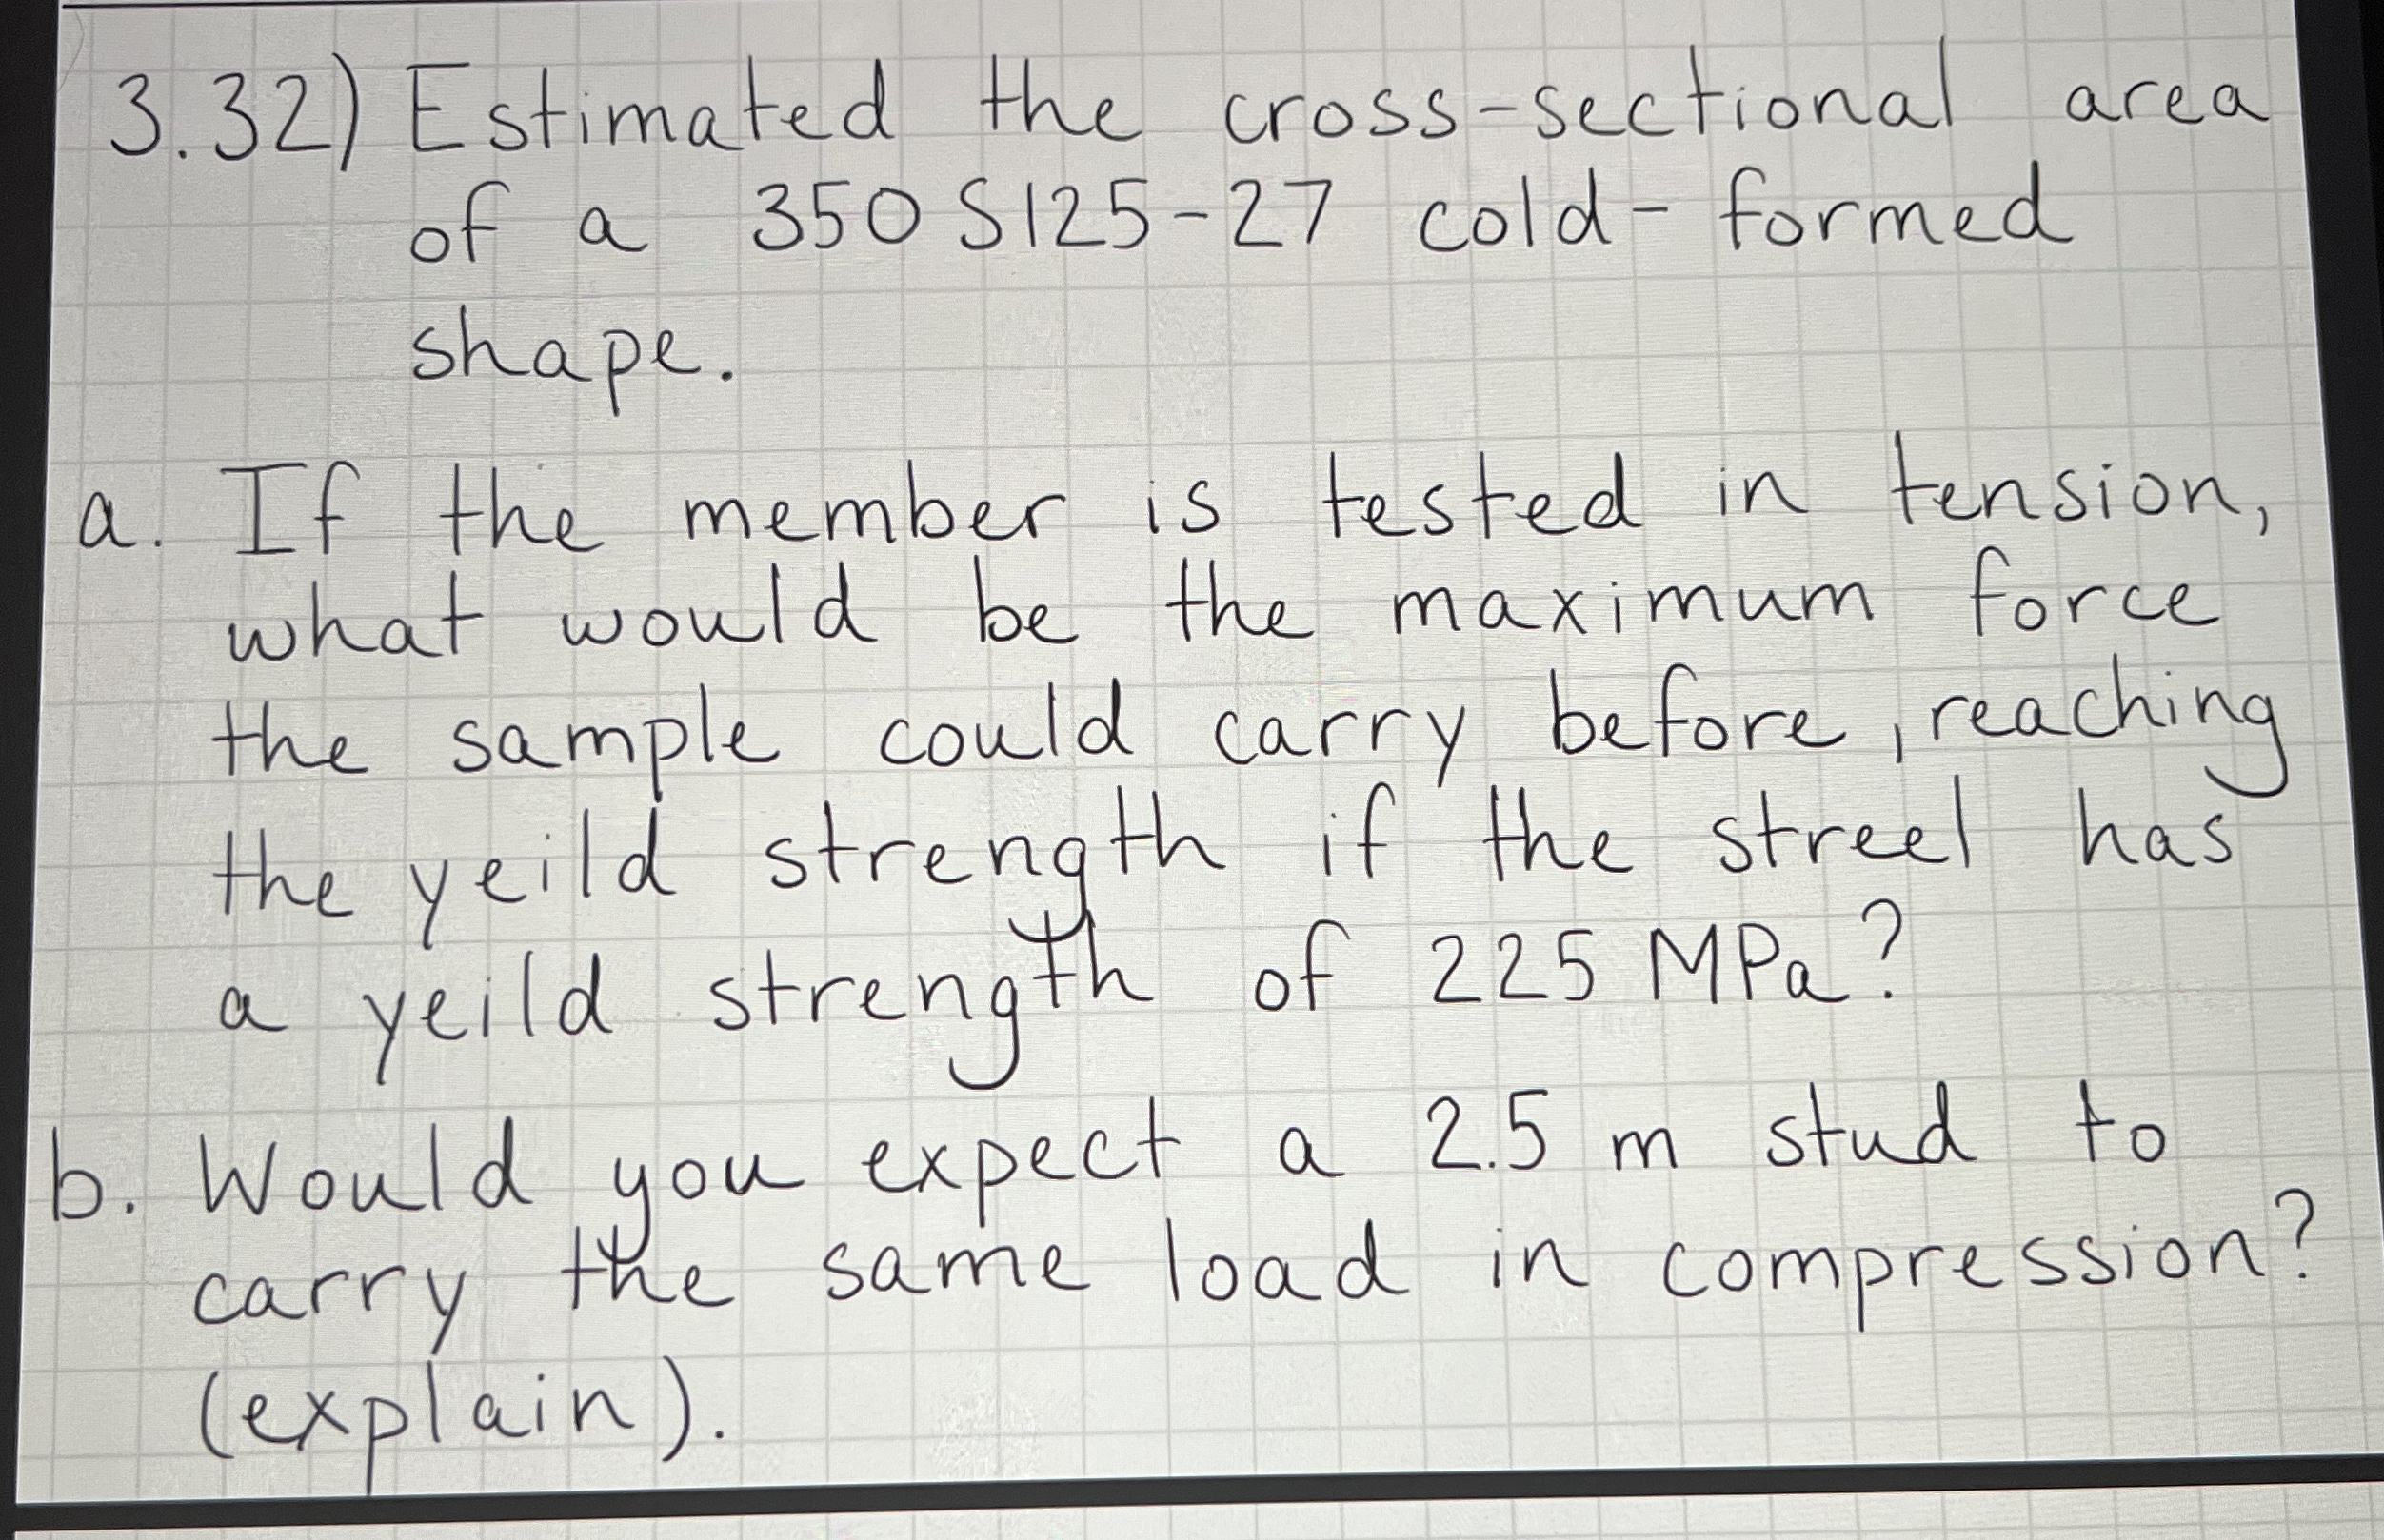 3.32) Estimated the cross-sectional area
of a 350 S125-27 cold-formed
shape.
a. If the member is tested in tension,
what would be the maximum force
the sample could carry before, reaching
the yeild strength if the streel has
a yeild strength of 225 MPa?
b. Would you expect a 2.5 m stud to
carry the same load in compression?
(explain).